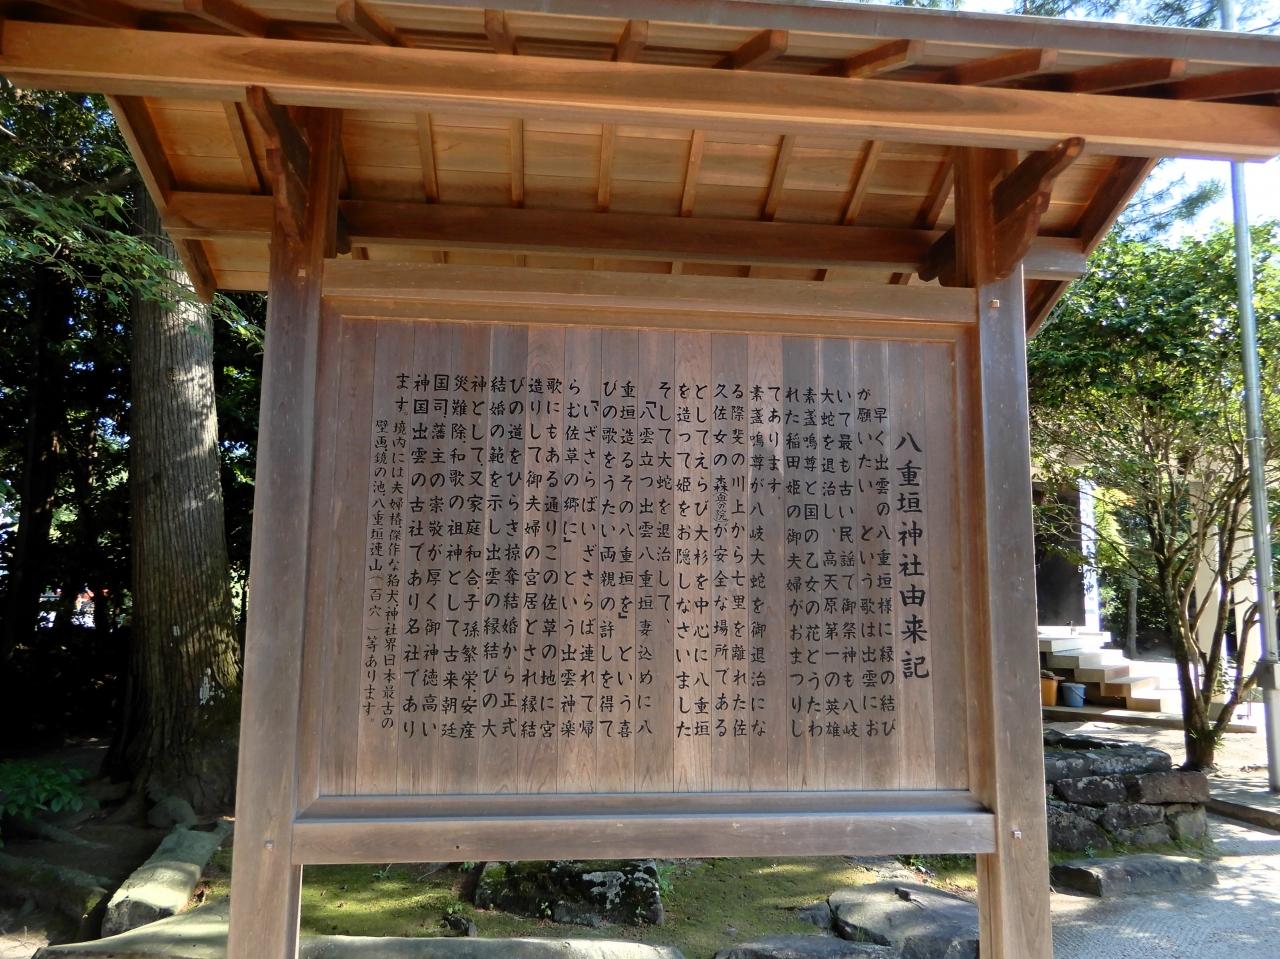 八重垣神社由来記
早く出雲の八重垣様に縁の結び
が願いたい という歌は出雲にお
いて最も古い民謡で御祭神も八岐
大蛇を退治し、高天原第一の英雄
素盞嗚尊と国の乙女の花とうたわ
れた稲田姫の御夫婦がおまつりし
てあります。
素盞嗚尊が八岐大蛇を御退治にな
る際斐の川上から七里を離れた佐
久佐女の森(奥の院)が安全な場所である
としてえらび大杉を中心に八重垣
を造って姫をお隠しなさいました
そして大蛇を退治して、
「八雲立つ出雲八重垣妻込めに八
重垣造るその八重垣を」という喜
びの歌をうたい両親の許しを得て
「いざさらばいざさらば連れて帰
らむ佐草の郷に」という出雲神楽
歌にもある通りこの佐草の地に宮
造りして御夫婦の宮居とされ縁結
びの道をひらき掠奪結婚から正式
結婚の範を示し出雲の縁結びの大
神として、又家庭和合、子孫繁栄、安産
災難除、和歌の祖神として古来朝廷
国司藩主の崇敬が厚く御神徳高い
神国出雲の古社であり名社であり
ます。
境内には夫婦椿傑作な狛犬、神社界日本最古の
壁画鏡の池、八重垣連山(百穴)等あります。